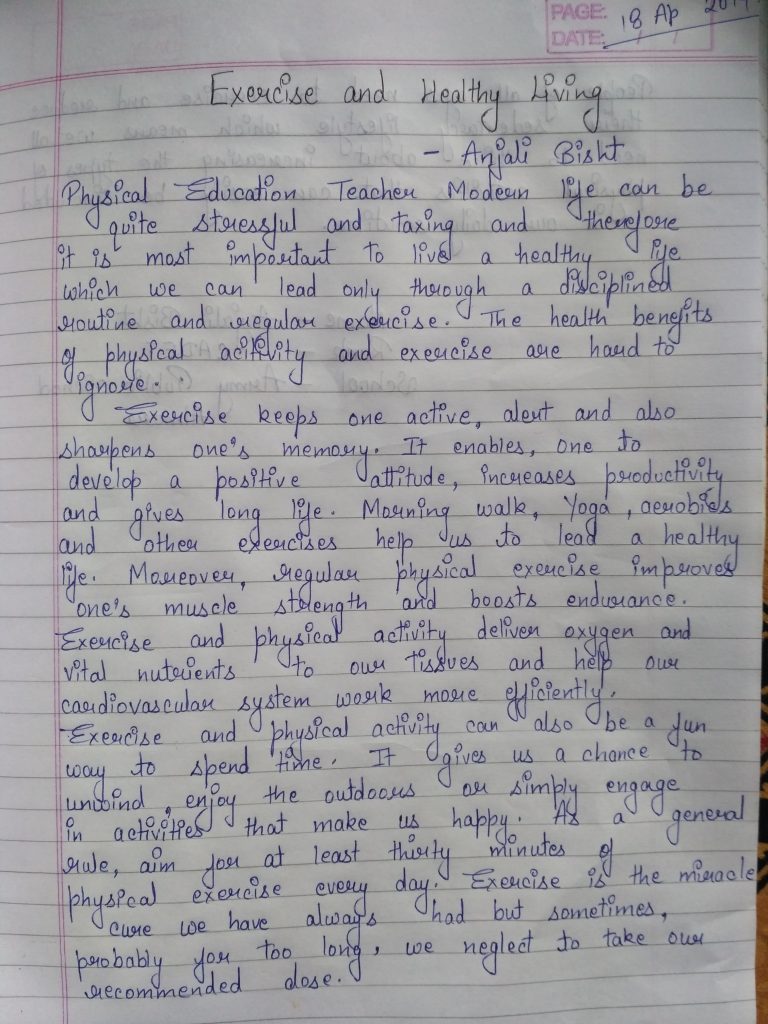 PAGE: 18 Ap
DATE:
Exercise and Healthy Living
- Anjali Bisht
Physical Education Teacher Modern life can be
quite stressful and taxing and therefore
it is most important to live a healthy life
which we can lead only through a disciplined
routine and regular exercise. The health benefits
of physical acitivity and exercise are hard to
ignore.
Exercise keeps one active, alert and also
sharpens one's memory. It enables, one to
develop a positive attitude, increases productivity
and gives long life. Morning walk, Yoga, aerobics
and other exercises help us to lead a healthy
life. Moreover, regular physical exercise improves
one's muscle strength and boosts endurance.
Exercise and physical activity deliver oxygen and
vital nutrients to our tissues and help our
cardiovascular system work more efficiently.
Exercise and physical activity can also be a fun
way to spend time. It gives us a chance to
unwind, enjoy the outdoors or simply engage
in activities that make us happy. As a general
rule, aim for at least thirty minutes of
physical exercise every day. Exercise is the miracle
cure we have always had but sometimes,
probably for too long, we neglect to take our
recommended dose.